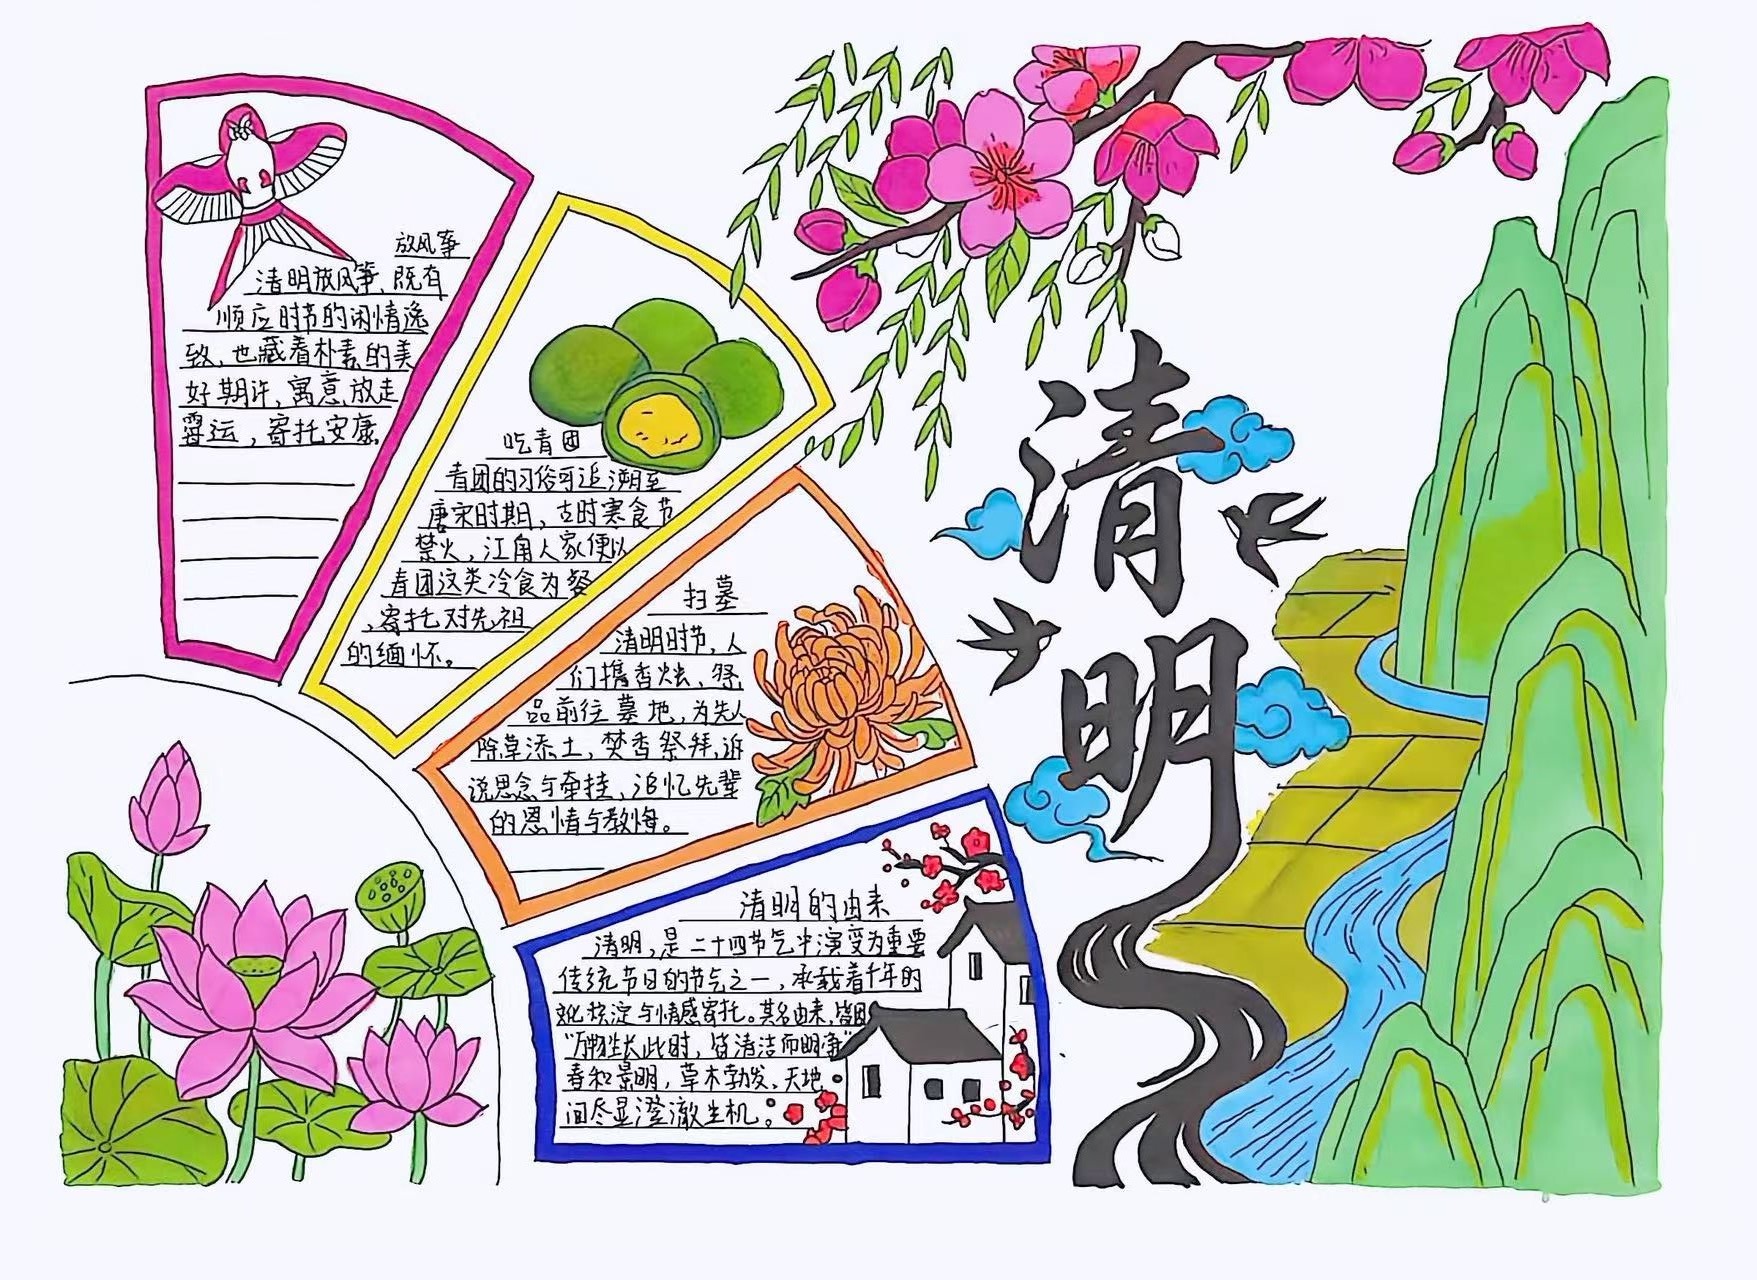 放风筝
清明放风筝，既有
顺应时节的闲情逸
致，也藏着朴素的美
好期许，寓意放走
霉运，寄托安康。
吃青团
青团的习俗可追溯至
唐宋时期，古时寒食节
禁火，江南人家便以
青团这类冷食为餐
，寄托对先祖
的缅怀。
扫墓
清明时节，人
们携香烛、祭
品前往墓地，为先人
除草添土，焚香祭拜，诉
说思念与牵挂，追忆先辈
的恩情与教悔。
清明的由来
清明，是二十四节气中演变为重要
传统节日的节气之一，承载着千年的
文化积淀与情感寄托。其名由来，皆因
“万物生长此时，皆清洁而明净”
春和景明，草木勃发、天地
间尽显澄澈生机。
清
明